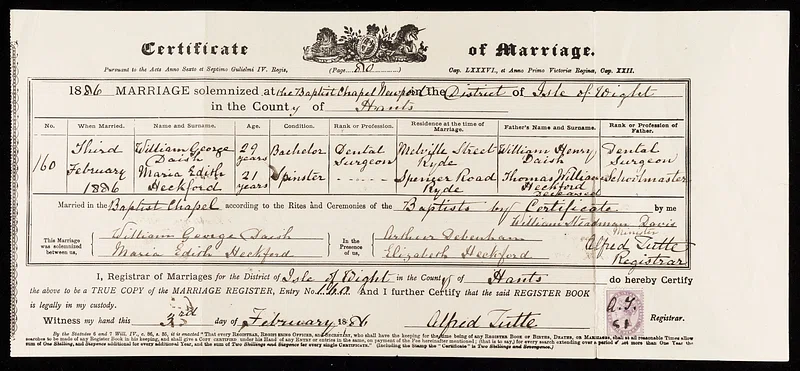 Certificate of Marriage.
Pursuant to the Acts Anno Sexto et Septimo Gulielmi IV. Regis, (Page 80) Cap. LXXXVI., et Anno Primo Victoriæ Reginæ, Cap. XXII.
1886 MARRIAGE solemnized at the Baptist Chapel Newport in the District of Isle of Wight
in the County of Hants
No. When Married. Name and Surname. Age. Condition. Rank or Profession. Residence at the time of Marriage. Father's Name and Surname. Rank or Profession of Father.
160 Third February 1886
William George Daish 29 years Bachelor Dental Surgeon Melville Street Ryde William Henry Daish Dental Surgeon
Maria Edith Heckford 21 years Spinster Spencer Road Ryde Thomas William Heckford deceased Schoolmaster
Married in the Baptist Chapel according to the Rites and Ceremonies of the Baptists by Certificate by me
William Steadman Davis
Minister
This Marriage was solemnized between us,
William George Daish
Maria Edith Heckford
In the Presence of us,
Arthur Debenham
Elizabeth Heckford
Alfred Tuttle
Registrar
I, Registrar of Marriages for the District of Isle of Wight in the County of Hants do hereby Certify
the above to be a TRUE COPY of the MARRIAGE REGISTER, Entry No. 160 And I further Certify that the said REGISTER BOOK
is legally in my custody.
Witness my hand this 3rd day of February 1886 Alfred Tuttle Registrar.
A.T.
By the Statutes 6 and 7 Will. IV., c. 86, s. 35, it is enacted "That every REGISTRAR, REGISTERING OFFICER, and SECRETARY, who shall have the keeping for the time being of any REGISTER BOOK OF BIRTHS, DEATHS, OR MARRIAGES, shall at all reasonable Times allow
searches to be made of any Register Book in his keeping, and shall give a COPY certified under his Hand of any ENTRY or ENTRIES in the same, on payment of the Fee hereinafter mentioned; (that is to say,) for every search extending over a period not more than One Year the
sum of One Shilling, and Sixpence additional for every additional Year, and the Sum of Two Shillings and Sixpence for every single CERTIFICATE." (Including the Stamp the "Certificate" is Two Shillings and Sevenpence.)